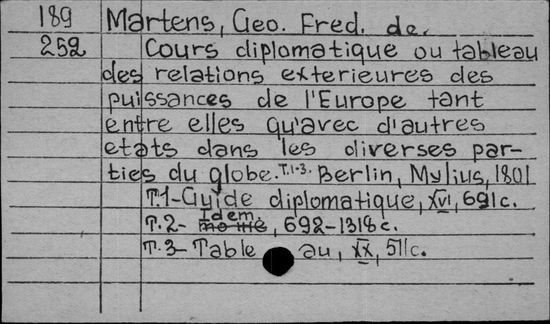 189 Martens, Geo. Fred. de.
252 Cours diplomatique ou tableau
des relations exterieures des
puissances de l'Europe tant
entre elles qu'avec d'autres
etats dans les diverses par-
ties du globe. T.1-3. Berlin, Mylius, 1801
T.1-Guide diplomatique, XVI, 691c.
T.2- Idem, 692-1318c.
T.3-Table au, XX, 511c.